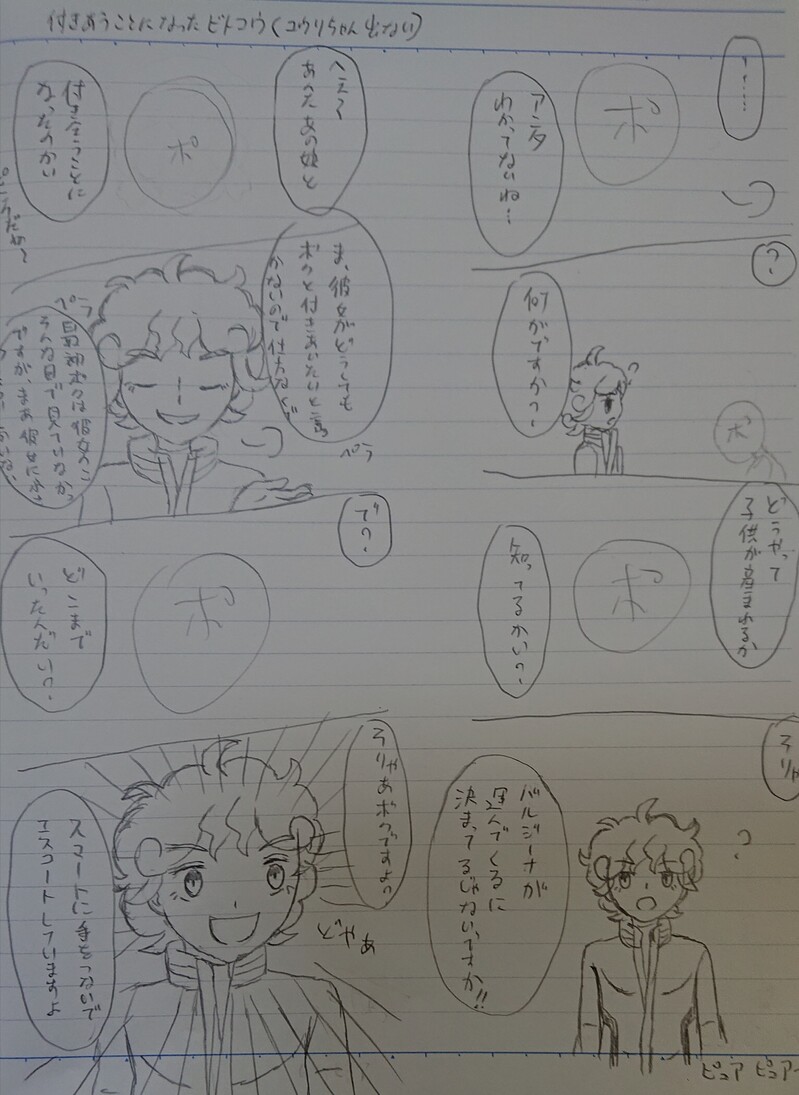 付きあうことになったビトユウ(ユウリちゃん出ない)
へえ〜
あんたあの娘と
ポ
付き合うことに
なったのかい
ま、彼女がどうしても
ボクと付きあいたいと言
かないので仕方なくで
ペラ
ペラ
ボクは彼女のこ
そんな目で見ているか
ですが、まあ彼女に
で?
ポ
どこまで
いったんだい?
そりゃあボクですよ?
スマートに手をつないで
エスコートしていますよ
…
ポ
アンタ
わかってないね…
?
何がですか?
ポ
どうやって
子供が産まれるか
ポ
知ってるかい?
そりゃ
?
バルジーナが
運んでくるに
決まってるじゃないですか!!
ピュア ピュアー